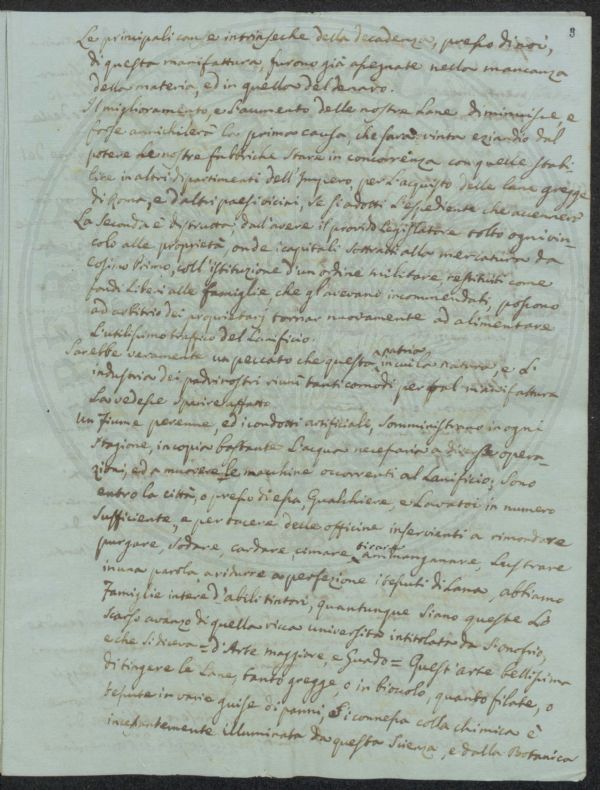 8
Le principali cause intrinseche della decadenza, presso di noi,
di questa manifattura, furono già assegnate nella mancanza
della materia, ed in quella del denaro.
Il miglioramento, e l'aumento delle nostre Lane diminuisce, e
forse annichilerà la prima causa, che sarà vinta eziandio dal
potere le nostre fabbriche stare in concorrenza con quelle stabi-
lite in altri dipartimenti dell'Impero, per l'acquisto delle lane gregge
di Roma, e d'altri paesi vicini, se si adotti l'espediente che accennerò
La Seconda è distrutta, dall'avere il provido Legislatore tolto ogni vin-
colo alle proprietà onde i capitali sottratti alla mercatura da
Cosimo Primo, coll'istituzione d'un ordine militare, restituiti come
fondi Liberi alle famiglie, che gl'avevano incommendati, possono
ad arbitrio dei proprietarj tornar nuovamente ad alimentare
L'utilissimo traffico del Lanificio.
Sarebbe veramente un peccato che questa patria in cui la natura, e l'
industria dei padri nostri riunì tanti comodi per tal manifattura
La vedesse sparire affatto.
Un fiume perenne, ed i condotti artificiale, somministrano in ogni
Stagione, in copia bastante l'acqua necessaria a diverse opera-
zioni, ed a muovere le macchine occorrenti al Lanificio; Sono
entro la città, o presso di essa, Gualchiere, e Lavatoi in numero
Sufficiente, e per tacere delle officine inservienti a rimondare
purgare, sodare, cardare, cimare, tirare manganare, Lustrare
in una parola, a ridurre a perfezione i tessuti di Lana, abbiamo
Famiglie intere d'abili tintori, quantunque siano queste Lo
scarso avanzo di quella ricca università intitolata da S. Onofrio,
e che si diceva = d'Arte maggiore, e Guado = Quest'arte bellissima
di tingere le Lane, tanto gregge, o in bioccolo, quanto filate, o
tessute in varie guise di panni, Si connessa colla chimica è
incessantemente illuminata da questa Scienza, e dalla Botanica